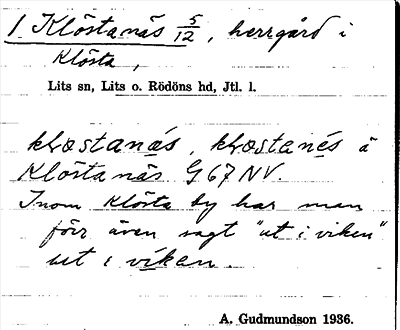 1 Klöstanäs 5/12, herrgård i
Klösta,
Lits sn, Lits o. Rödöns hd, Jtl. l.
kḷøstanä́s, kḷøstané̱s å
Klöstanäs G 67 NV.
Inom Klösta by har man
förr även sagt "ut i viken"
ut i víkan.
A. Gudmundson 1936.